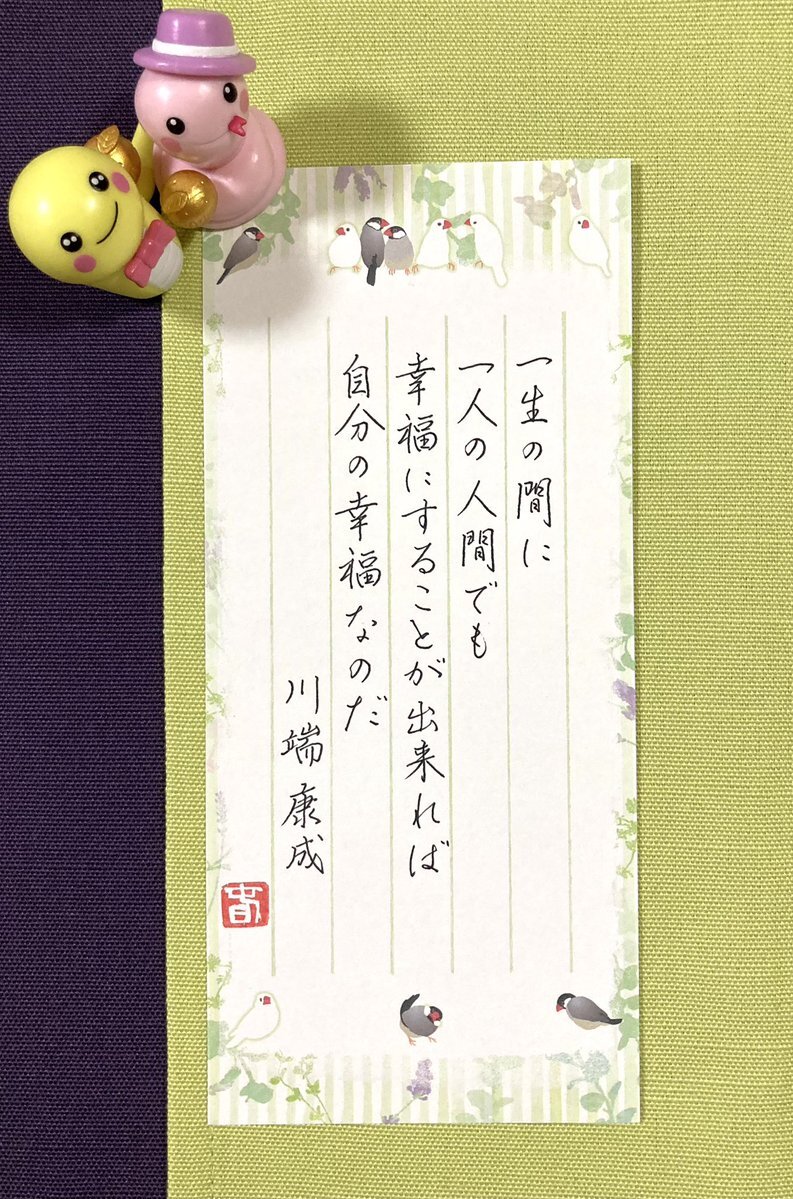 一生の間に
一人の人間でも
幸福にすることが出来れば
自分の幸福なのだ
川端康成